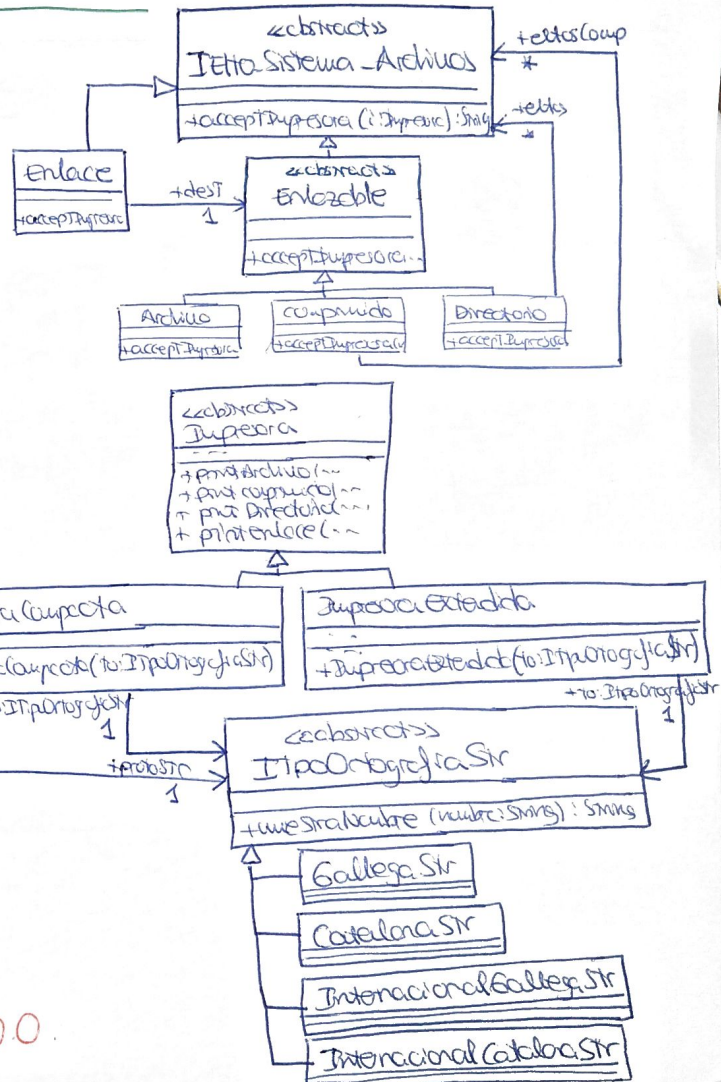 <<abstract>>
IEltoSistema_Archivos
+acceptImpresora (i:Impresora):String
+eltosComp
*
+eltos
*
Enlace
+acceptImpresora
+dest
1
<<abstract>>
Enlazable
+acceptImpresora...
Archivo
+acceptImpresora
Comprimido
+acceptImpresora(
Directorio
+acceptImpresora
<<abstract>>
Impresora
---
+ printArchivo(...
+ printComprimido(...
+ printDirectorio(...
+ printEnlace(...
aCompacta
Compacta(to:ITipoOrtografiaStr)
:ITipoOrtografiaStr
1
ImpresoraExtendida
+ImpresoraExtendida(to:ITipoOrtografiaStr)
+to:ITipoOrtografiaStr
1
+protoStr
1
<<abstract>>
ITipoOrtografiaStr
+muestraNombre (nombre:String) : String
GallegaStr
CatalanaStr
InternacionalGallegaStr
InternacionalCatalanaStr
0.